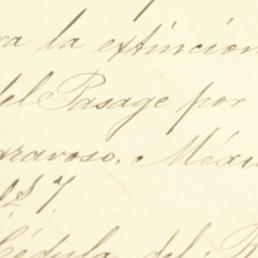 la extinción
del Pasage por
gravoso. Méxi
$ 7
Cédula del R